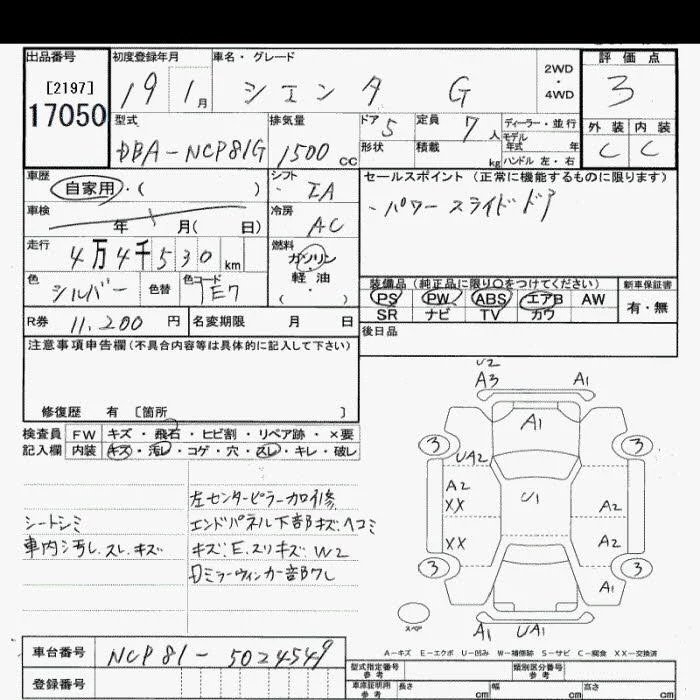 出品番号 初度登録年月 車名・グレード 評価点
[2197]
17050
19 1月 シエンタ G 2WD・4WD 3
型式 排気量 ドア 5 定員 7人 ディーラー・並行 外装 内装
モデル年式 年
DBA-NCP81G 1500cc 形状 積載 kg ハンドル 左・右 C C
車歴 自家用・( ) シフト IA セールスポイント (正常に機能するものに限ります)
・パワースライドドア
車検 年 月( 日) 冷房 AC
走行 4万4千530km 燃料 ガソリン・軽油・( )
色 シルバー 色替 色コード 1E7
装備品 (純正品に限り○をつけてください) 新車保証書
PS PW ABS エアB AW 有・無
SR ナビ TV カワ
R券 11,200円 名変期限 月 日 後日品
注意事項申告欄(不具合内容等は具体的に記入して下さい)
修復歴 有 〔箇所 〕
検査員 FW キズ・飛石・ヒビ割・リペア跡・×要
記入欄 内装 キズ・汚れ・コゲ・穴・スレ・キレ・破レ
左センターピラーカロ修
シートシミ エンドパネル下部キズ.ヘコミ
車内汚レ.スレ.キズ キズ.E.スリキズ.W2
ミラーウィンカー部ワレ
U2
A3 A1
A1
3 3
UA2
A2
XX U1 A2
XX A2
3 3
A1
スペア A1 UA1
A-キズ E-エクボ U-凹み W-補修跡 S-サビ C-腐食 XX-交換済
車台番号 NCP81-5024549
登録番号
型式指定番号 参考 類別区分番号 参考
車庫証明用 参考 長さ cm 幅 cm 高さ cm